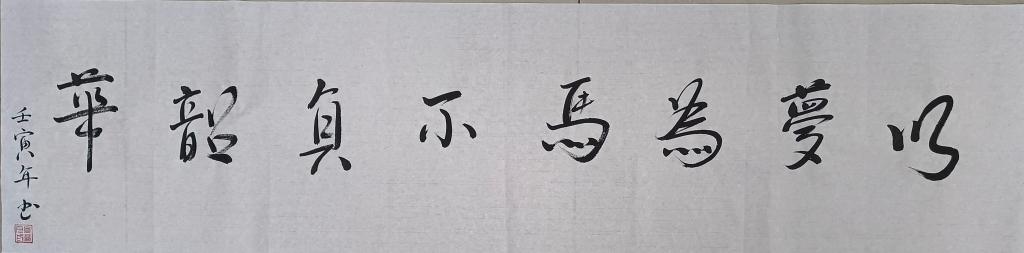 以夢為馬不負韶華
壬寅年書